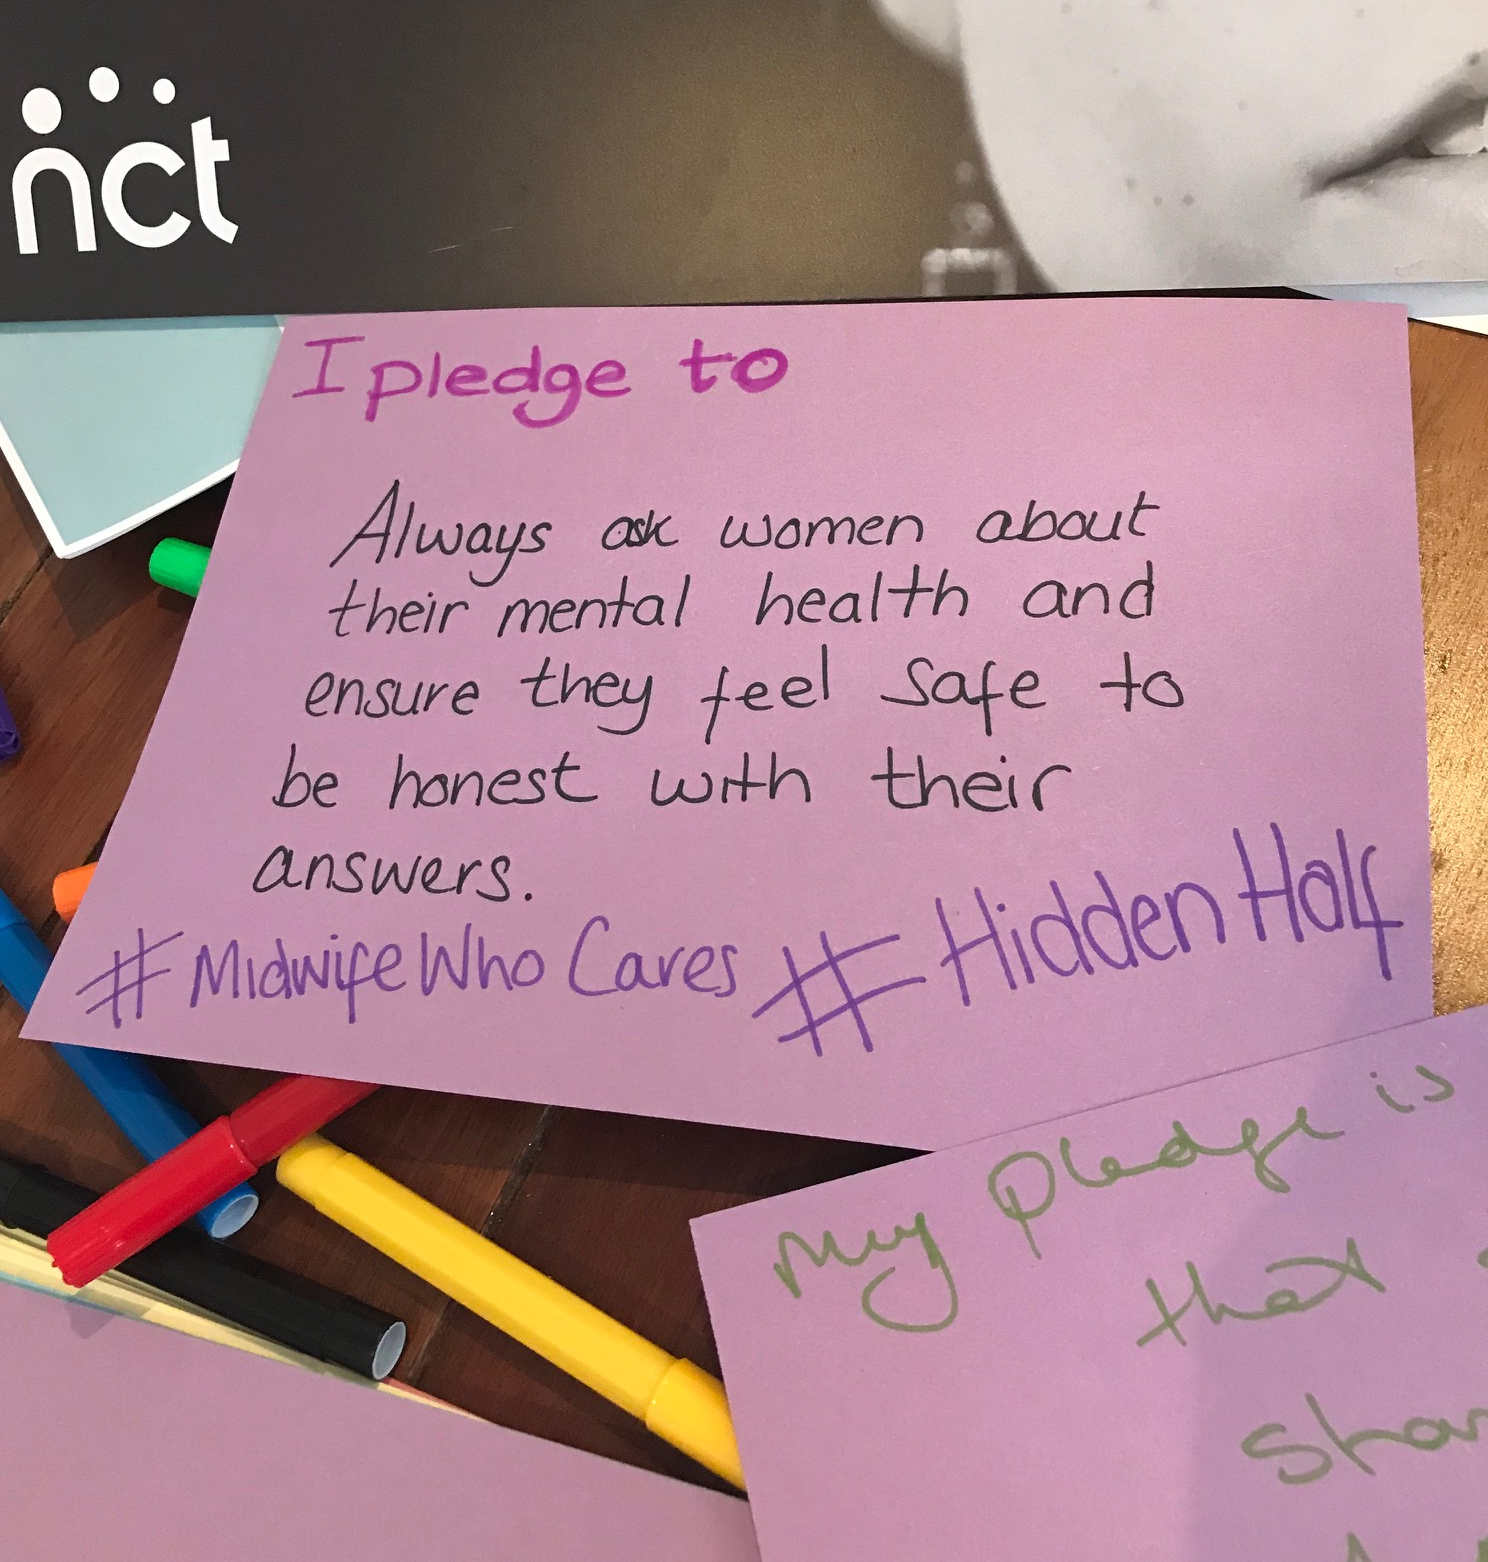 nct
I pledge to
Always ask women about
their mental health and
ensure they feel safe to
be honest with their
answers.
#MidwifeWhoCares #HiddenHalf
My pledge is
that